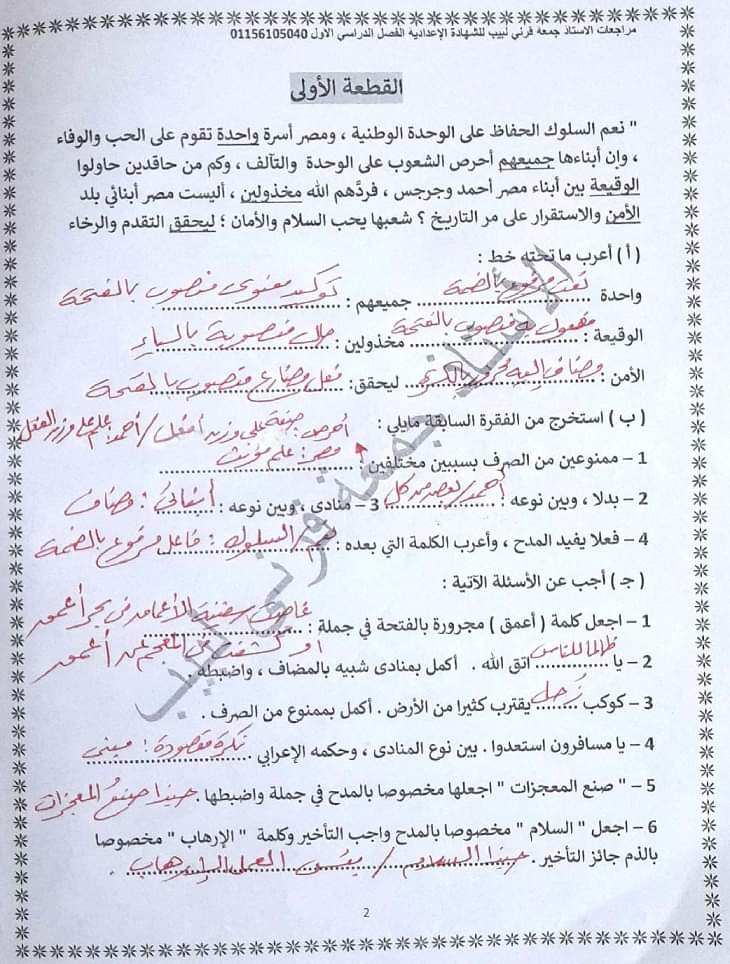 مراجعات الاستاذ جمعه قرني نبيب للشهادة الإعدادية الفصل الدراسي الاول 01156105040
القطعة الأولى
" نعم السلوك الحفاظ على الوحدة الوطنية ، ومصر أسرة واحدة تقوم على الحب والوفاء
، وإن أبناءها جميعهم أحرص الشعوب على الوحدة والتآلف ، وكم من حاقدين حاولوا
الوقيعة بين أبناء مصر أحمد وجرجس ، فردَّهم الله مخذولين ، أليست مصر أبنائي بلد
الأمن والاستقرار على مر التاريخ ؟ شعبها يحب السلام والأمان ؛ ليحقق التقدم والرخاء
( أ ) أعرب ما تحته خط :
واحدة نعت مرفوع بالضمة جميعهم : توكيد معنوى منصوب بالفتحة
الوقيعة : مفعول به منصوب بالفتحة مخذولين : حال منصوبة بالياء
الأمن : مضاف إليه مجرور بالكسرة ليحقق: فعل مضارع منصوب بالفتحة
( ب ) استخرج من الفقرة السابقة مايلي : أحرص صفة على وزن أفعل / أحمد علم على وزن الفعل
1 – ممنوعين من الصرف بسببين مختلفين : مصر : علم مؤنث
2 – بدلا ، وبين نوعه : أحمد / بعض من كل 3 – منادى ، وبين نوعه : أبنائى : مضاف
4 – فعلا يفيد المدح ، وأعرب الكلمة التي بعده : نعم / السلوك : فاعل مرفوع بالضمة
( جـ ) أجب عن الأسئلة الآتية :
1 – اجعل كلمة ( أعمق ) مجرورة بالفتحة في جملة : غاصت سفينة الأعماق فى بحر أعمق
أو كشفت فى المعجم عن أعمق
2 – يا ظالما للناس اتق الله . أكمل بمنادى شبيه بالمضاف ، واضبطه .
3 – كوكب زحل يقترب كثيرا من الأرض . أكمل بممنوع من الصرف .
4 – يا مسافرون استعدوا . بين نوع المنادى ، وحكمه الإعرابي . نكرة مقصودة : مبنى
5 – " صنع المعجزات " اجعلها مخصوصا بالمدح في جملة واضبطها . حبذا صنعُ المعجزات
6 – اجعل " السلام " مخصوصا بالمدح واجب التأخير وكلمة " الإرهاب " مخصوصا
بالذم جائز التأخير . حبذا السلام / بئس العمل الإرهاب .
2
الأستاذ جمعة قرني نبيب